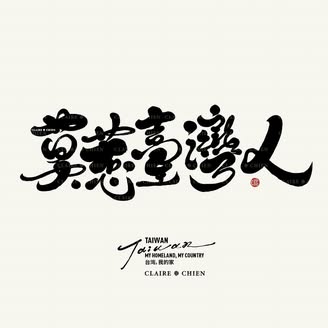 莫惹臺灣人
TAIWAN
Taiwan
MY HOMELAND, MY COUNTRY
台灣, 我的家
CLAIRE CHIEN